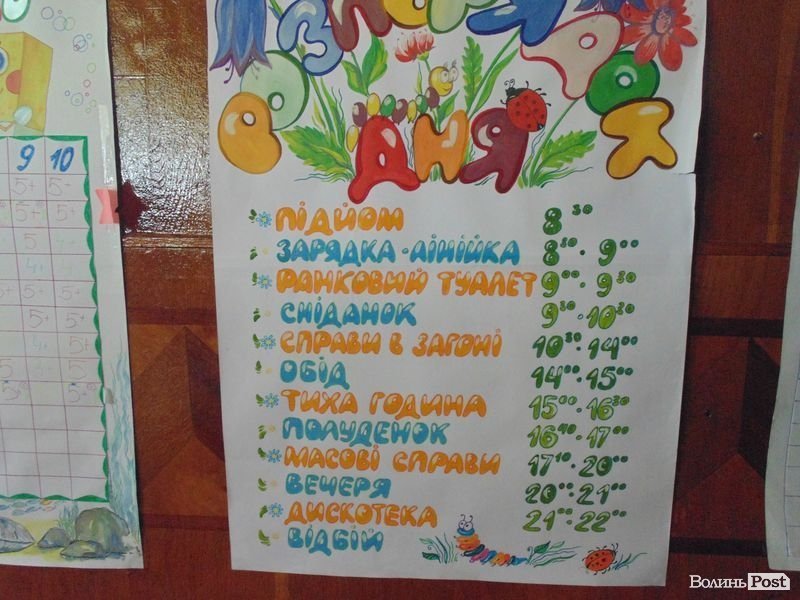 РОЗПОРЯДОК
ДНЯ
ПІДЙОМ 8³⁰
ЗАРЯДКА·ЛІНІЙКА 8³⁰·9⁰⁰
РАНКОВИЙ ТУАЛЕТ 9⁰⁰·9³⁰
СНІДАНОК 9³⁰·10³⁰
СПРАВИ В ЗАГОНІ 10³⁰·14⁰⁰
ОБІД 14⁰⁰·15⁰⁰
ТИХА ГОДИНА 15⁰⁰·16³⁰
ПОЛУДЕНОК 16⁴⁰·17⁰⁰
МАСОВІ СПРАВИ 17¹⁰·20⁰⁰
ВЕЧЕРЯ 20⁰⁰·21⁰⁰
ДИСКОТЕКА 21⁰⁰·22⁰⁰
ВІДБІЙ
9 10
5+ 5+
5+ 5+
ВолиньPost